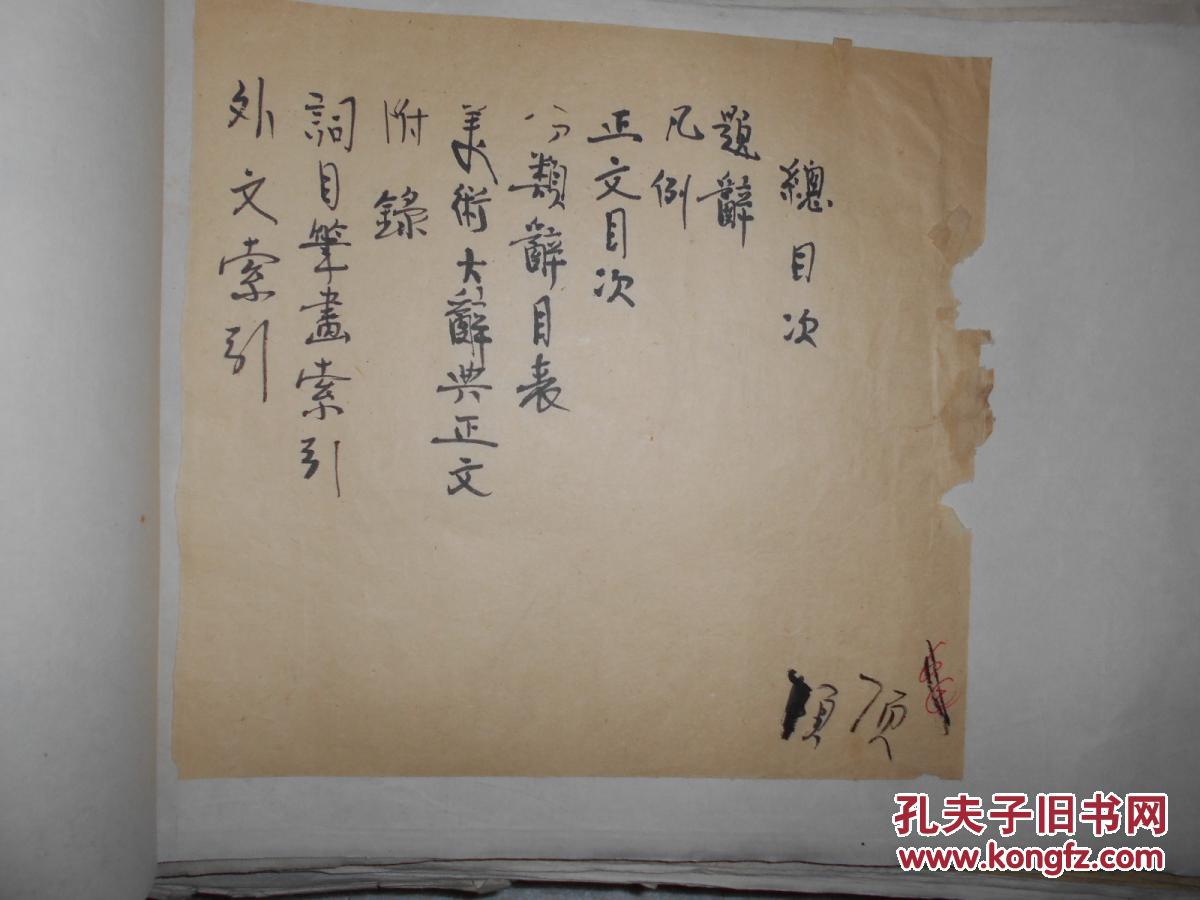 總目次
題辭
凡例
正文目次
分類辭目表
美術大辭典正文
附錄
詞目筆畫索引
外文索引
孔夫子旧书网
www.kongfz.com